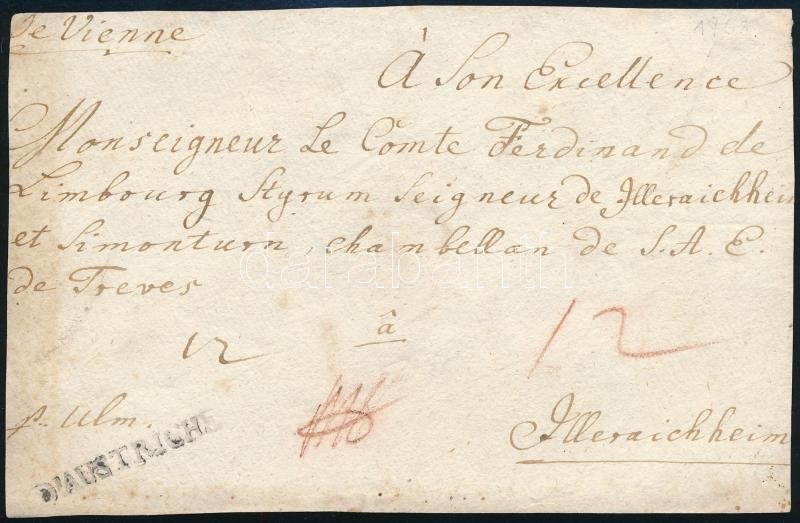 De Vienne
1763
à Son Excellence
Monseigneur Le Comte Ferdinand de
Limbourg Styrum Seigneur de Illeraichheim
et Simonturn, chambellan de S. A. E.
de Treves
darabanth
â
12
12
p. Ulm.
D'AUSTRICHE
Illeraichheim